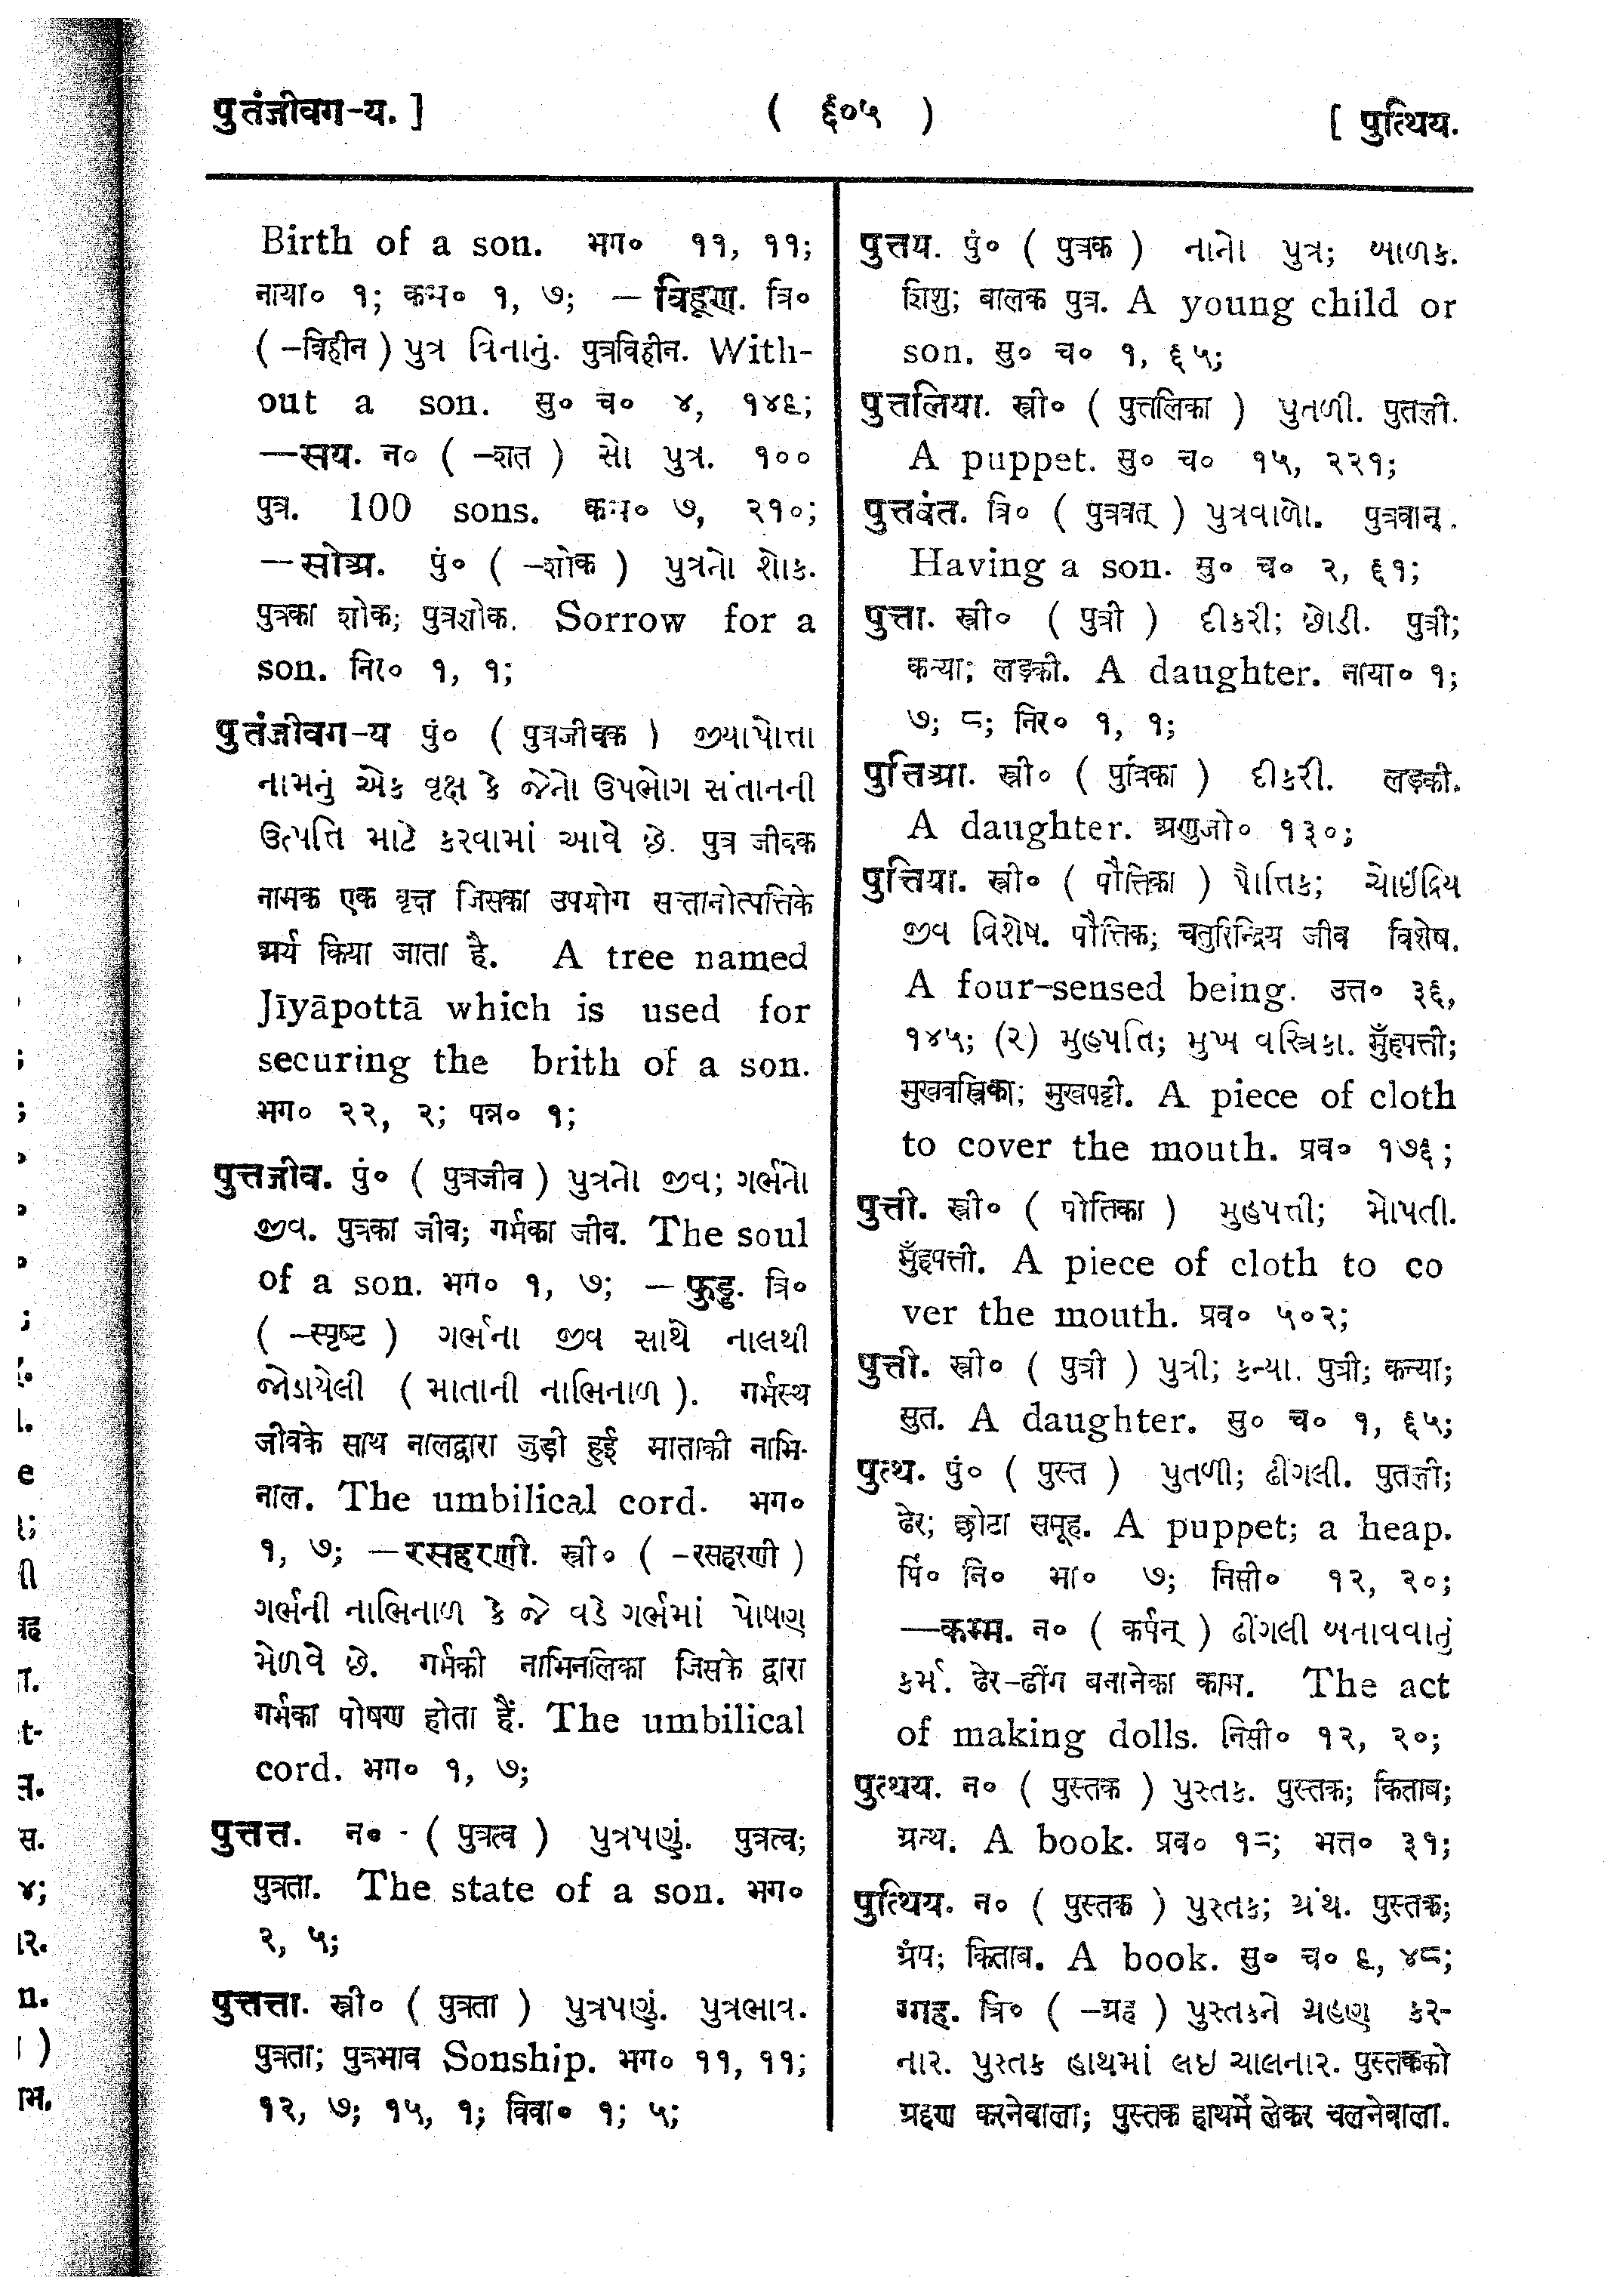 पुतंजीवग-य. ]
( ६०५ )
[ पुत्थिय.
Birth of a son. भग० ११, ११;
नाया० १; कप्प० १, ७; —विहूण. त्रि०
(-विहीन) पुत्र વિનાનું. पुत्रविहीन. With-
out a son. सु० च० ४, १४९;
—सय. न० ( -शत ) સો પુત્ર. १००
पुत्र. 100 sons. कप्प० ७, २१०;
—सोअ. पुं० ( -शोक ) પુત્રનો શોક.
पुत्रका शोक; पुत्रशोक. Sorrow for a
son. निर० १, १;
पुतंजीवग-य पुं० ( पुत्रजीवक ) જીયાપોત્તા
નામનું એક વૃક્ષ કે જેનો ઉપભોગ સંતાનની
ઉત્પત્તિ માટે કરવામાં આવે છે. पुत्र जीवक
नामक एक वृक्ष जिसका उपयोग सन्तानोत्पत्तिके
अर्थ किया जाता है. A tree named
Jīyāpottā which is used for
securing the brith of a son.
भग० २२, २; पन्न० १;
पुत्तजीव. पुं० ( पुत्रजीव ) પુત્રનો જીવ; ગર્ભનો
જીવ. पुत्रका जीव; गर्भका जीव. The soul
of a son. भग० १, ७; —फुड्ड. त्रि०
( -स्पृष्ट ) ગર્ભના જીવ સાથે નાલથી
જોડાયેલી ( માતાની નાભિનાળ ). गर्भस्थ
जीवके साथ नालद्वारा जुड़ी हुई माताकी नाभि-
नाल. The umbilical cord. भग०
१, ७; —रसहरणी. स्त्री० ( -रसहरणी )
ગર્ભની નાભિનાળ કે જે વડે ગર્ભમાં પોષણ
મેળવે છે. गर्भकी नाभिनलिका जिसके द्वारा
गर्भका पोषण होता हैं. The umbilical
cord. भग० १, ७;
पुत्तत्त. न० - ( पुत्रत्व ) પુત્રપણું. पुत्रत्व;
पुत्रता. The state of a son. भग०
२, ५;
पुत्तत्ता. स्त्री० ( पुत्रता ) પુત્રપણું. પુત્રભાવ.
पुत्रता; पुत्रभाव Sonship. भग० ११, ११;
१२, ७; १५, १; विवा० १; ५;
पुत्तय. पुं० ( पुत्रक ) નાનો પુત્ર; બાળક.
शिशु; बालक पुत्र. A young child or
son. सु० च० १, ६५;
पुत्तलिया. स्त्री० ( पुत्तलिका ) પુતળી. पुतली.
A puppet. सु० च० १५, २२१;
पुत्तवंत. त्रि० ( पुत्रवत् ) પુત્રવાળો. पुत्रवान्.
Having a son. सु० च० २, ६१;
पुत्ता. स्त्री० ( पुत्री ) દીકરી; છોડી. पुत्री;
कन्या; लड़की. A daughter. नाया० १;
७; ८; निर० १, १;
पुत्तिआ. स्त्री० ( पुत्रिका ) દીકરી. लड़की.
A daughter. अणुजो० १३०;
पुत्तिया. स्त्री० ( पौत्तिका ) પૌત્તિક; ચોઇંદ્રિય
જીવ વિશેષ. पौत्तिक; चतुरिन्द्रिय जीव विशेष.
A four-sensed being. उत्त० ३६,
१४५; (૨) મુહપતિ; મુખ વસ્ત્રિકા. मुँहपत्ती;
मुखवस्त्रिका; मुखपट्टी. A piece of cloth
to cover the mouth. प्रव० १७६;
पुत्ती. स्त्री० ( पोतिका ) મુહપત્તી; મોપતી.
मुँहपत्ती. A piece of cloth to co
ver the mouth. प्रव० ५०२;
पुत्ती. स्त्री० ( पुत्री ) પુત્રી; કન્યા. पुत्री; कन्या;
सुत. A daughter. सु० च० १, ६५;
पुत्थ. पुं० ( पुस्त ) પુતળી; ઢીંગલી. पुतली;
ढेर; छोटा समूह. A puppet; a heap.
पिं० नि० भा० ७; निसी० १२, २०;
—कम्म. न० ( कर्मन् ) ઢીંગલી બનાવવાનું
કર્મ. ढेर-ढींग बनानेका काम. The act
of making dolls. निसी० १२, २०;
पुत्थय. न० ( पुस्तक ) પુસ્તક. पुस्तक; किताब;
ग्रन्थ. A book. प्रव० १८; भत्त० ३१;
पुत्थिय. न० ( पुस्तक ) પુસ્તક; ગ્રંથ. पुस्तक;
ग्रंथ; किताब. A book. सु० च० ९, ४८;
ग्गह. त्रि० ( -ग्रह ) પુસ્તકને ગ્રહણ કર-
નાર. પુસ્તક હાથમાં લઇ ચાલનાર. पुस्तकको
ग्रहण करनेवाला; पुस्तक हाथमें लेकर चलनेवाला.